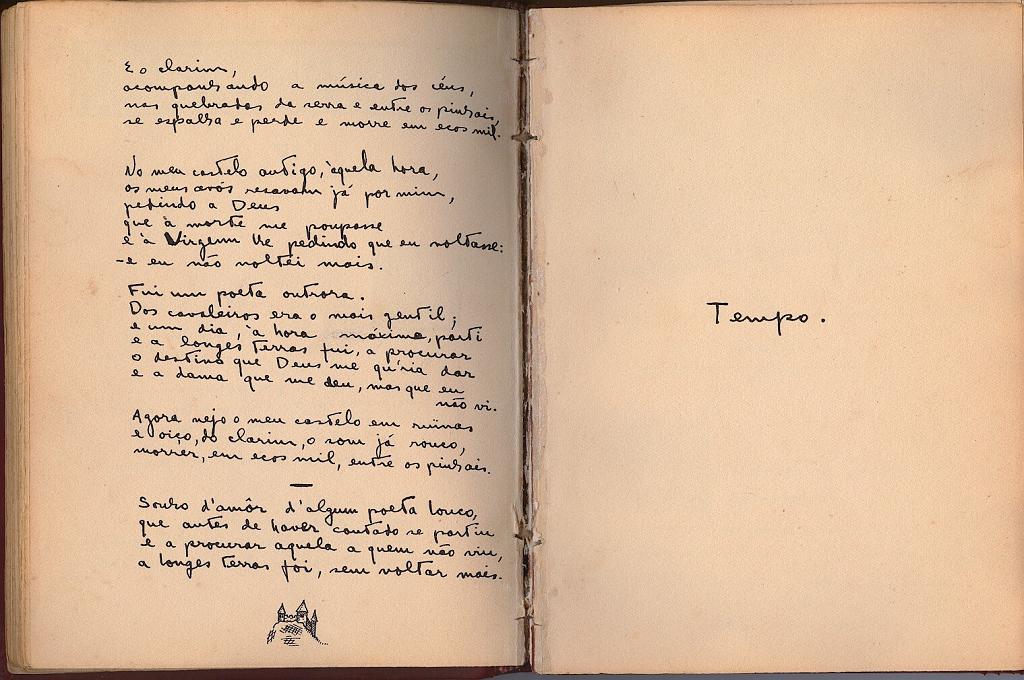 E o clarim,
acompanhando a música dos céus,
nas quebradas da serra e entre os pinhais,
se espalha e perde e morre em ecos mil.
No meu castelo antigo, àquela hora,
os meus avós resavam já por mim,
pedindo a Deus
que à morte me poupasse
e à Virgem lhe pedindo que eu voltasse:
- e eu não voltei mais.
Fui um poeta outrora.
Dos cavaleiros era o mais gentil;
e um dia, à hora máxima, parti
e a longes terras fui, a procurar
o destino que Deus me qu'ria dar
e a dama que me deu, mas que eu
não vi.
Agora vejo o meu castelo em ruinas
e oiço, do clarim, o som já rouco,
morrer, em ecos mil, entre os pinhais.
Sonho d'amôr d'algum poeta louco,
que antes de haver cantado se partiu
e a procurar aquela a quem não viu,
a longes terras foi, sem voltar mais.
Tempo.